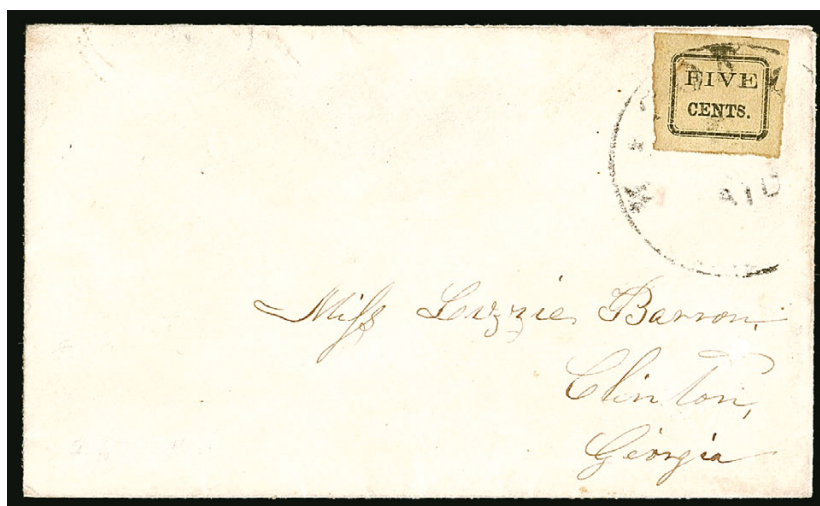 FIVE
CENTS.
Miss Lizzie Barron.
Clinton,
Georgia